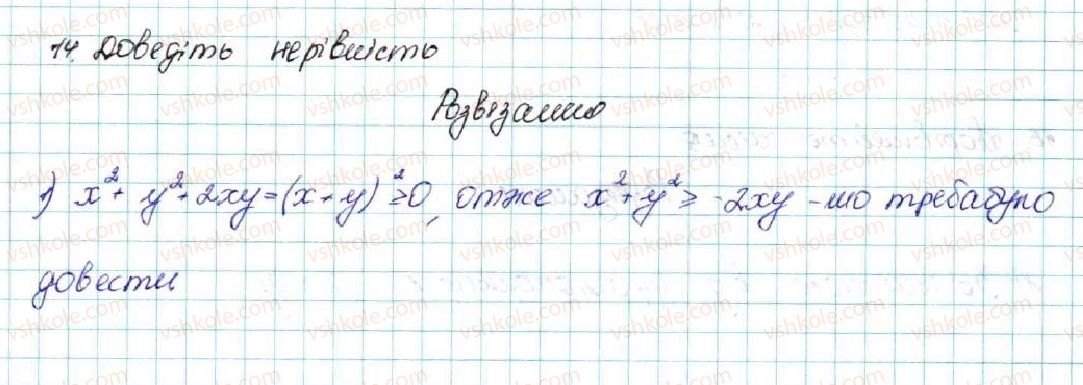 14. Доведіть нерівність
Розв'язання
1) x² + y² + 2xy = (x + y)² ≥ 0, отже x² + y² ≥ -2xy - що требабуло
довести